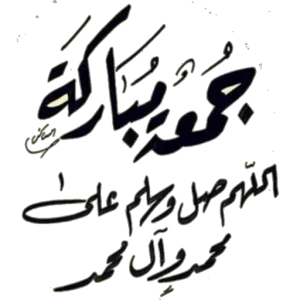 جُمُعَةٌ مُبَارَكَة
اللهم صل وسلم على
محمد وآل محمد